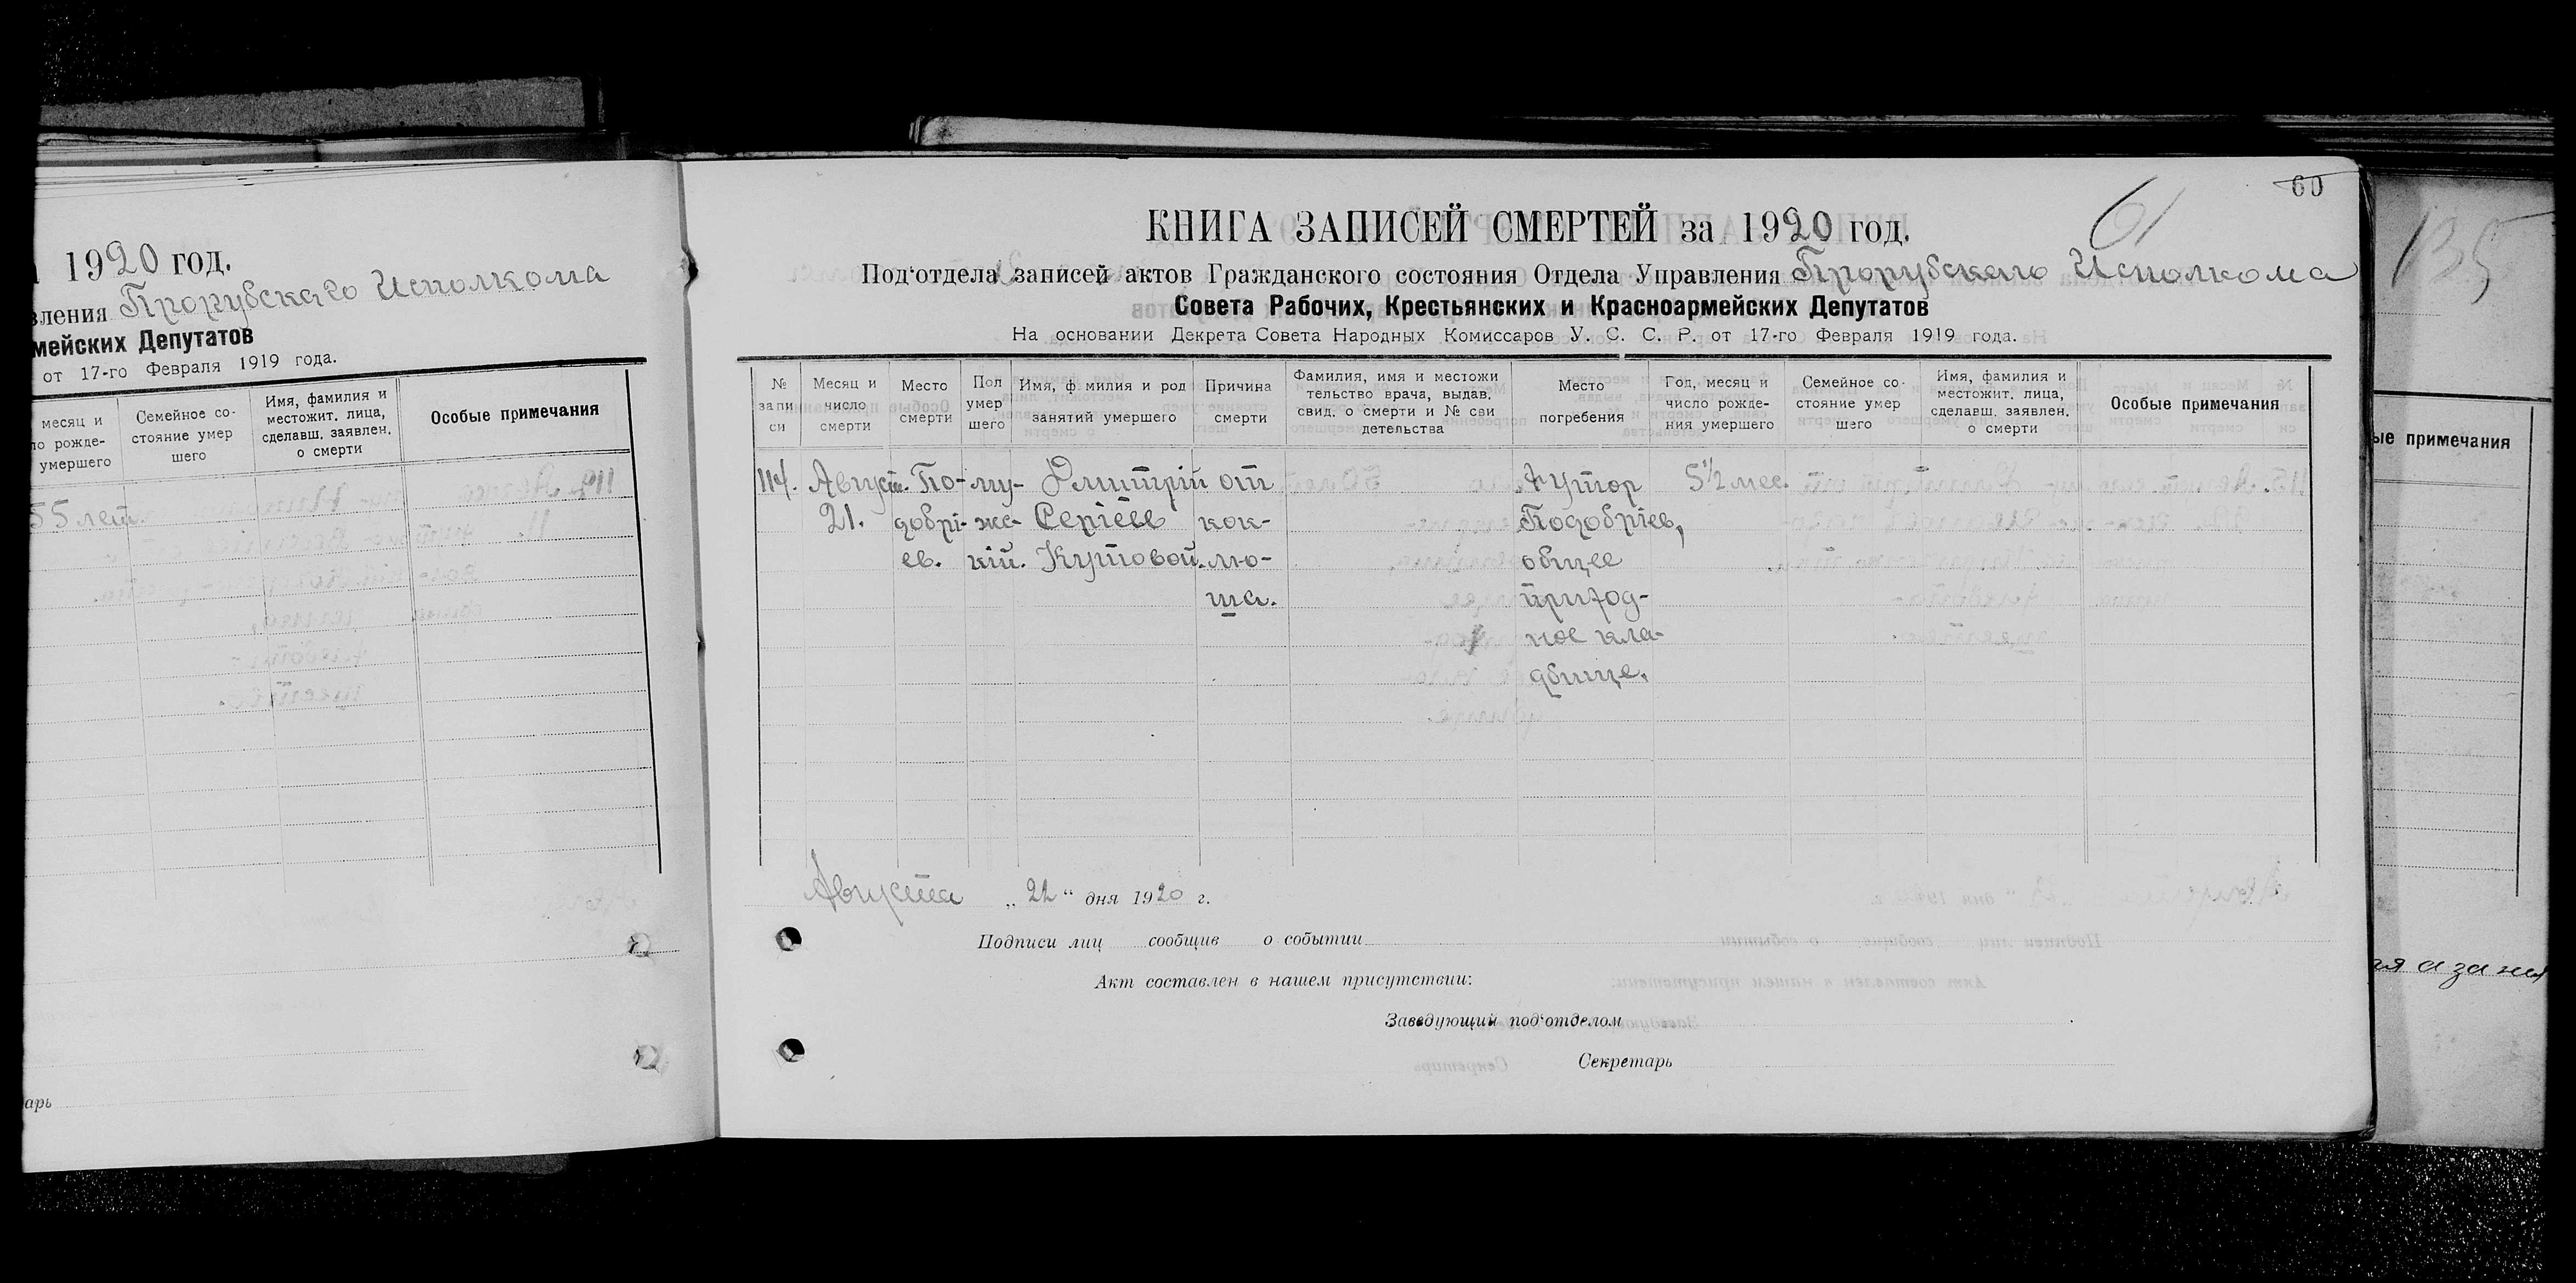 1920 год.
вления Прорубскаго Исполкома
мейских Депутатов
от 17-го Февраля 1919 года.
месяц и
ло рожде-
умершего
Семейное со-
стояние умер
шего
Имя, фамилия и
местожит. лица,
сделавш. заявлен.
о смерти
Особые примечания
55 лет.
арь
60
61
КНИГА ЗАПИСЕЙ СМЕРТЕЙ за 1920 год.
Под‘отдела записей актов Гражданского состояния Отдела Управления Прорубскаго Исполкома
Совета Рабочих, Крестьянских и Красноармейских Депутатов
На основании Декрета Совета Народных Комиссаров У. С. С. Р. от 17-го Февраля 1919 года.
№
запи
си
Месяц и
число
смерти
Место
смерти
Пол
умер
шего
Имя, ф милия и род
занятий умершего
Причина
смерти
Фамилия, имя и местожи
тельство врача, выдав.
свид. о смерти и № сви
детельства
Место
погребения
Год, месяц и
число рожде-
ния умершего
Семейное со-
стояние умер
шего
Имя, фамилия и
местожит. лица,
сделавш. заявлен.
о смерти
Особые примечания
114.
Август.
21.
По-
добрі-
ев.
му-
жс-
кій.
Дмитрій
Сергіевъ
Кутовой.
от
кок-
лю-
ша.
Хутор
Подобріев,
общее
приход-
ное кла-
дбище.
5 1/2 мес.
Августа „ 22 “ дня 1920 г.
Подписи лиц сообщив о событии
Акт составлен в нашем присутствии:
Заведующий под‘отделом
Секретарь
135
ые примечания